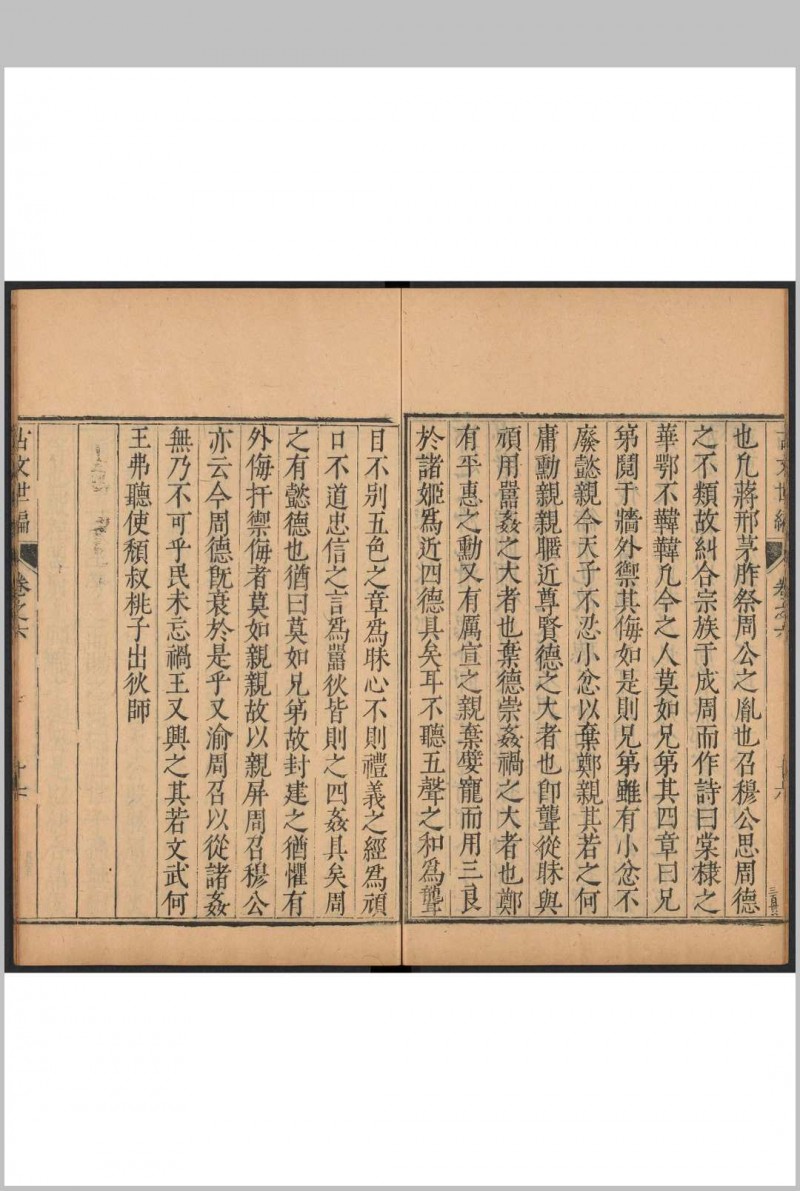 也凡蔣邢茅胙祭周公之胤也召穆公思周德
之不類故糾合宗族于成周而作詩曰棠棣之
華鄂不韡韡凡今之人莫如兄第其四章曰兄
第鬩于牆外禦其侮如是則兄第雖有小忿不
廢懿親今天子不忍小忿以棄鄭親其若之何
庸勳親親暱近尊賢德之大者也卽聾從昧與
頑用嚚姦之大者也棄德崇姦禍之大者也鄭
有平惠之勳又有厲宣之親棄嬖寵而用三良
於諸姬爲近四德具矣耳不聽五聲之和爲聾
目不别五色之章爲昧心不則德義之經爲頑
口不道忠信之言爲嚚狄皆則之四姦具矣周
之有懿德也猶曰莫如兄第故封建之猶懼有
外侮扞禦侮者莫如親親故以親屏周召穆公
亦云今周德旣衰於是乎又渝周召以從諸姦
無乃不可乎民未忘禍王又興之其若文武何
王弗聽使頹叔桃子出狄師
古文世編 卷之六